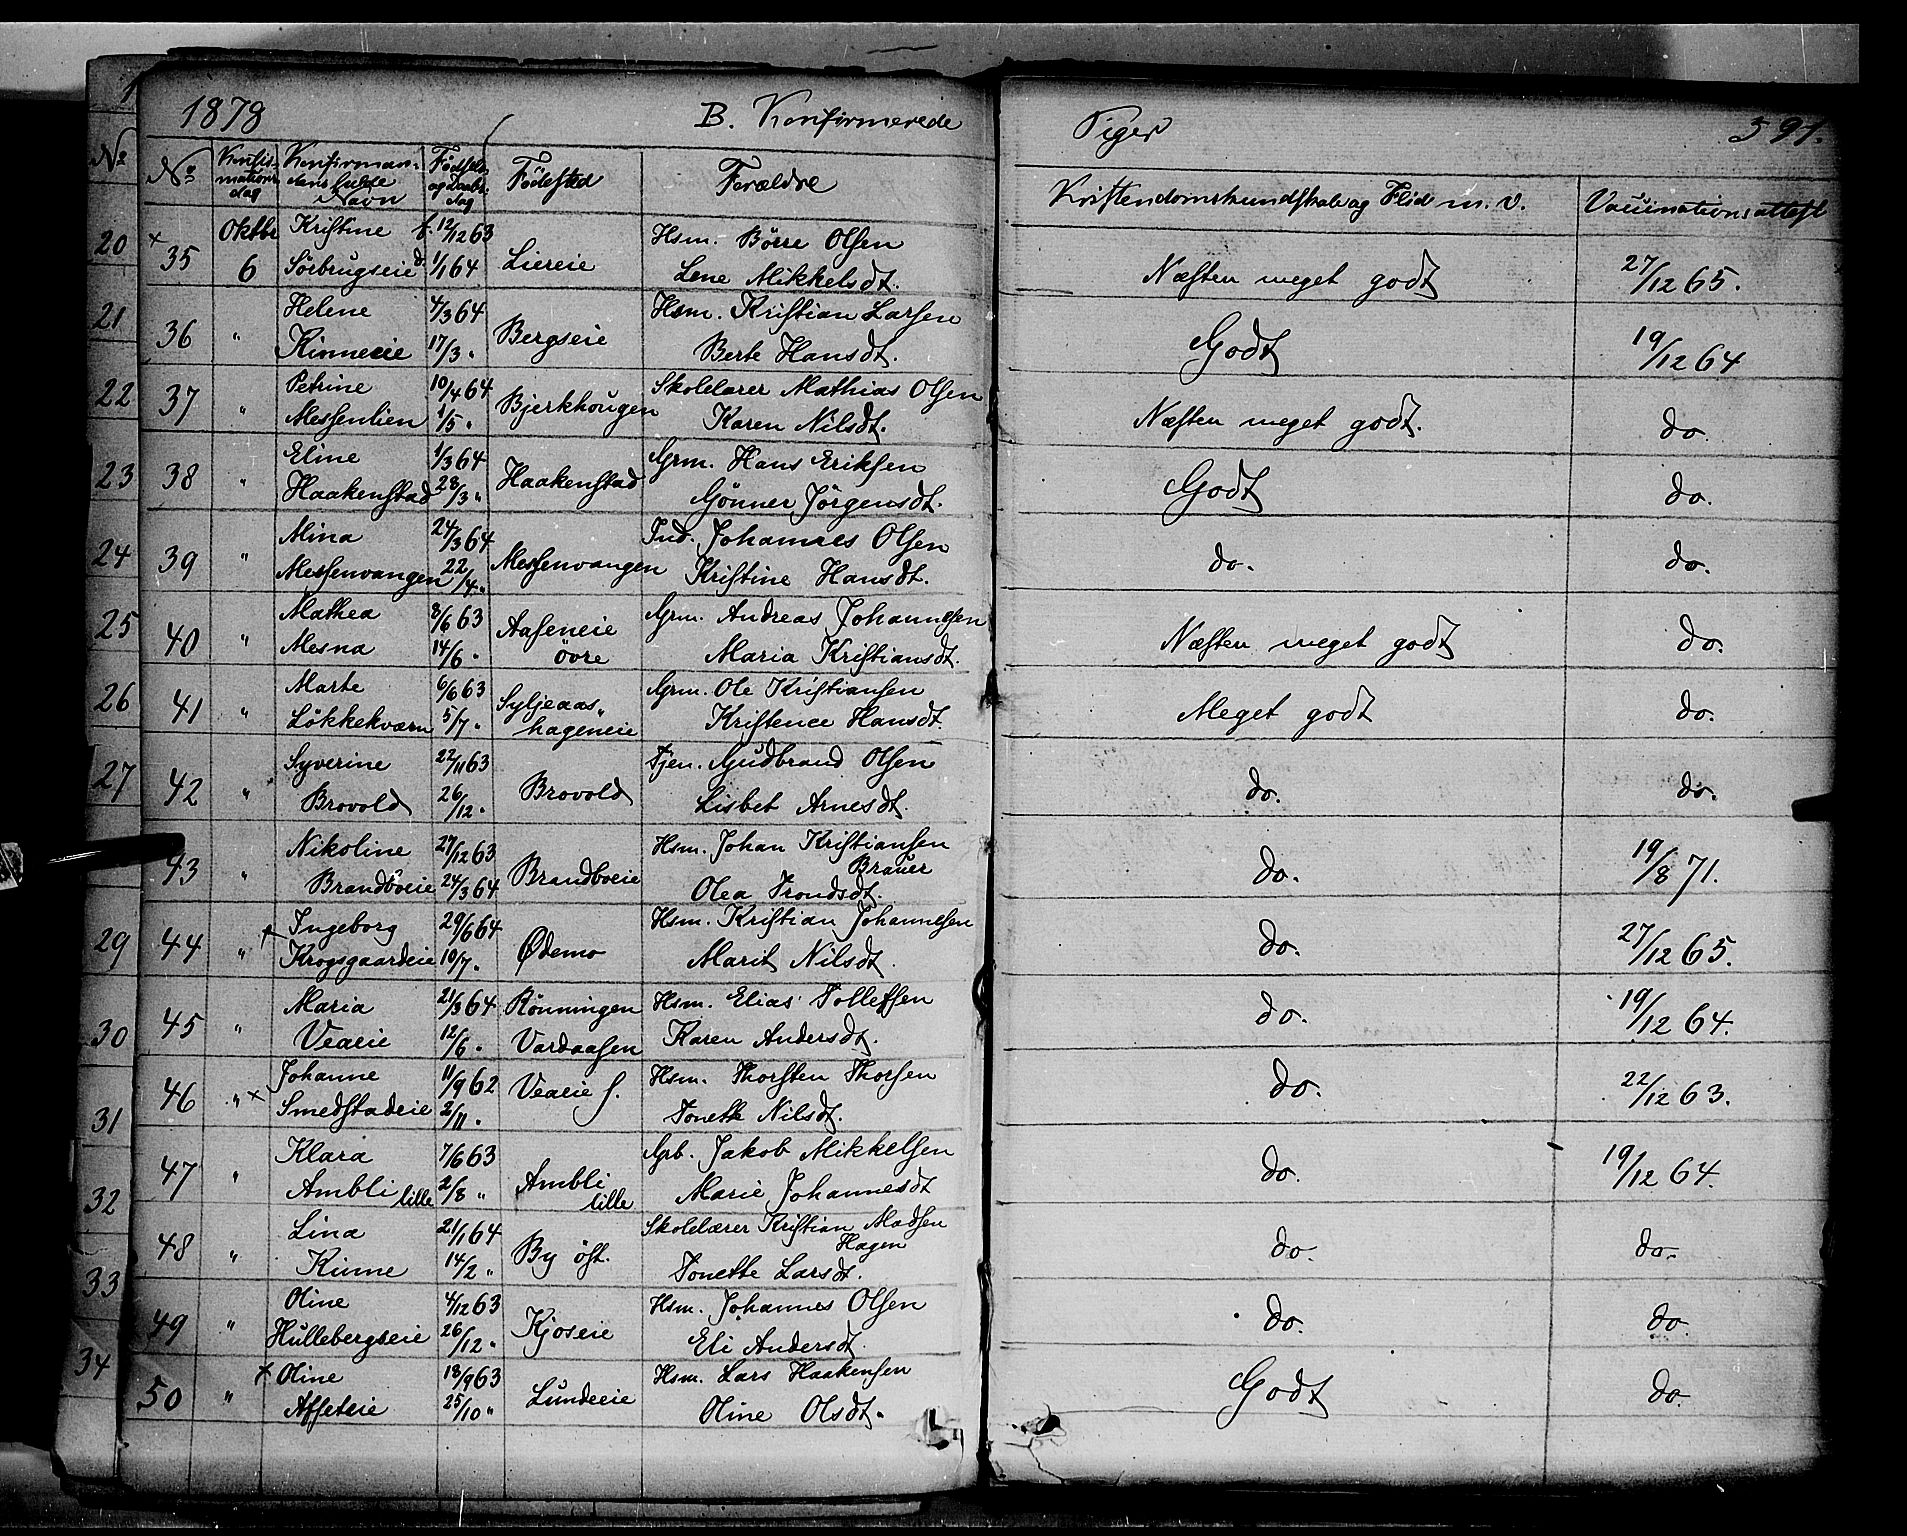 1878 B. Konfirmerede Piger 391.
No No Konfirmations dag Konfirmandens fulde Navn Fødsels og Daabsdag Fødested Forældre Kristendomskundskab og Flid m. v. Vaccinationsattest
20 × 35 Oktbr Kristine f. 12/12 63 Liereie Hsm. Börre Olsen Næsten meget godt 27/12 65.
6 Söebrugseie d. 1/1 64 Lene Mikkelsdt.
21 36 " Helene 4/3 64 Bergseie Hsm. Kristian Larsen Godt 19/12 64
Kinneeie 17/3 " Berte Hansdt.
22 37 " Petrine 10/4 64 Bjerkhougen Skolelærer Mathias Olsen Næsten meget godt. do.
Messenlien 1/5 " Karen Nilsdt.
23 38 " Eline 1/3 64 Haakenstad Grm. Hans Eriksen Godt do.
Haakenstad 28/3 " Gönner Jörgensdt.
24 39 " Mina 24/3 64 Messenvangen Ind. Johannes Olsen do. do.
Messenvangen 22/4 " Kristine Hansdt.
25 40 " Mathea 8/6 63 Aaseneie övre Grm. Andreas Johannesen Næsten meget godt do.
Mesna 14/6 " Maria Kristiansdt.
26 41 " Marte 6/6 63 Syljeaashageneie Grm. Ole Kristiansen Meget godt do.
Lökkekværn 5/7 " Kristence Hansdt.
27 42 " Syverine 22/11 63 Brovold Tjen. Gudbrand Olsen do. do.
Brovold 26/12 " Lisbet Arnesdt.
43 " Nikoline 27/12 63 Brandboeie Hsm. Johan Kristiansen Brauer do. 19/8 71.
Brandboeie 24/3 64 Olea Trondsdt.
29 44 " Ingeborg 29/6 64 Ødemo Hsm. Kristian Johannesen do. 27/12 65.
Krogsgaardeie 10/7 " Marit Nilsdt.
30 45 " Maria 21/3 64 Rönningen Hsm. Elias Tollefsen do. 19/12 64.
Veaeie 12/6 " Vardaasen Karen Andersdt.
31 46 " × Johanne 11/9 62 Veaeie s. Hsm. Thorsten Thorsen do. 22/12 63.
Smedstadeie 2/11 " Tonette Nilsdt.
32 47 " Klara 7/6 63 Ambli lille Grb. Jakob Mikkelsen do. 19/12 64.
Ambli lille 2/8 " Marie Johannesdt
48 " Lina 21/1 64 By öst. Skolelærer Kristian Madsen Hagen do. do.
33 Kinne 14/2 " Tonette Larsdt.
49 " Oline 4/12 63 Kjoseie Hsm. Johannes Olsen do. do.
Hullebergseie 26/12 " Eli Andersdt.
34 50 " × Oline 18/9 63 Lundeeie Hsm. Lars Haakensen Godt do.
Afseteie 25/10 " Oline Olsdt.